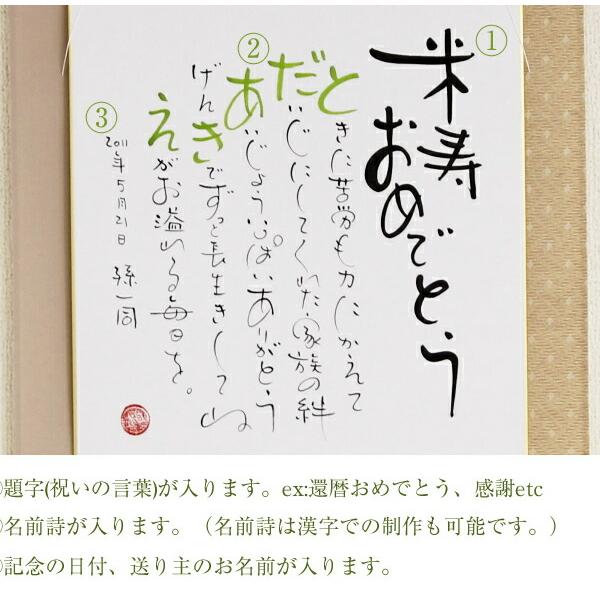 ①
米寿
おめでとう
②
ときに苦労も力にかえて
だいじにしてくれた家族の絆
あいじょういっぱいありがとう
げんきでずっと長生きしてね
えがお溢れる毎日を。
③
2011年5月21日 孫一同
①題字(祝いの言葉)が入ります。ex:還暦おめでとう、感謝etc
②名前詩が入ります。（名前詩は漢字での制作も可能です。）
③記念の日付、送り主のお名前が入ります。